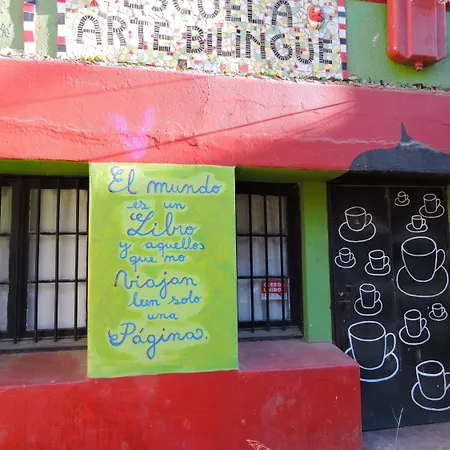 ESCUELA
ARTE BILINGÜE
El mundo
es un
Libro
y aquellos
que no
Viajan
leen solo
una
Página.